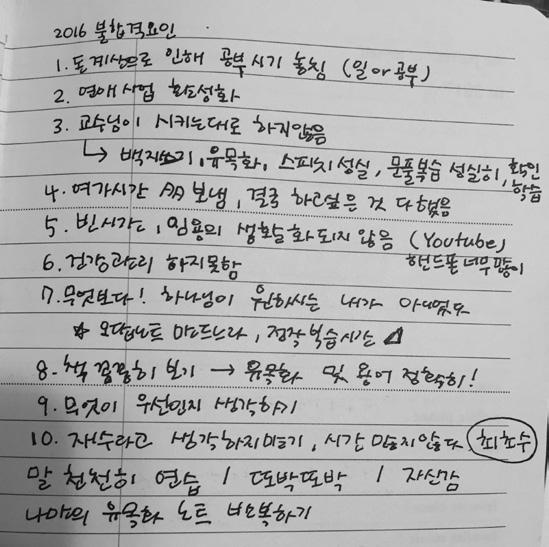 2016 불합격요인
1. 돈계산으로 인해 공부시기 놓침 (일or공부)
2. 연애사업 활성화
3. 교수님이 시키는대로 하지않음
↳ 백지쓰기, 유목화, 스피치성실, 문풀복습 성실히, 확인
학습
4. 여가시간 보냄, 결국 하고싶은 것 다했음
5. 빈시간도, 임용의 생활화되지 않음 (Youtube)
핸드폰너무많이
6. 건강관리 하지못함
7. 무엇보다! 하나님이 원하시는 내가 아니었다
☆ 오답노트 만드느라, 정작 복습시간 △
8. 책 꼼꼼히 보기 → 유목화 및 용어 정확히!
9. 무엇이 우선인지 생각하기
10. 재수라고 생각하지말기, 시간 많지않다 최초수
말 천천히 연습 / 또박또박 / 자신감
나만의 유목화 노트 반복하기